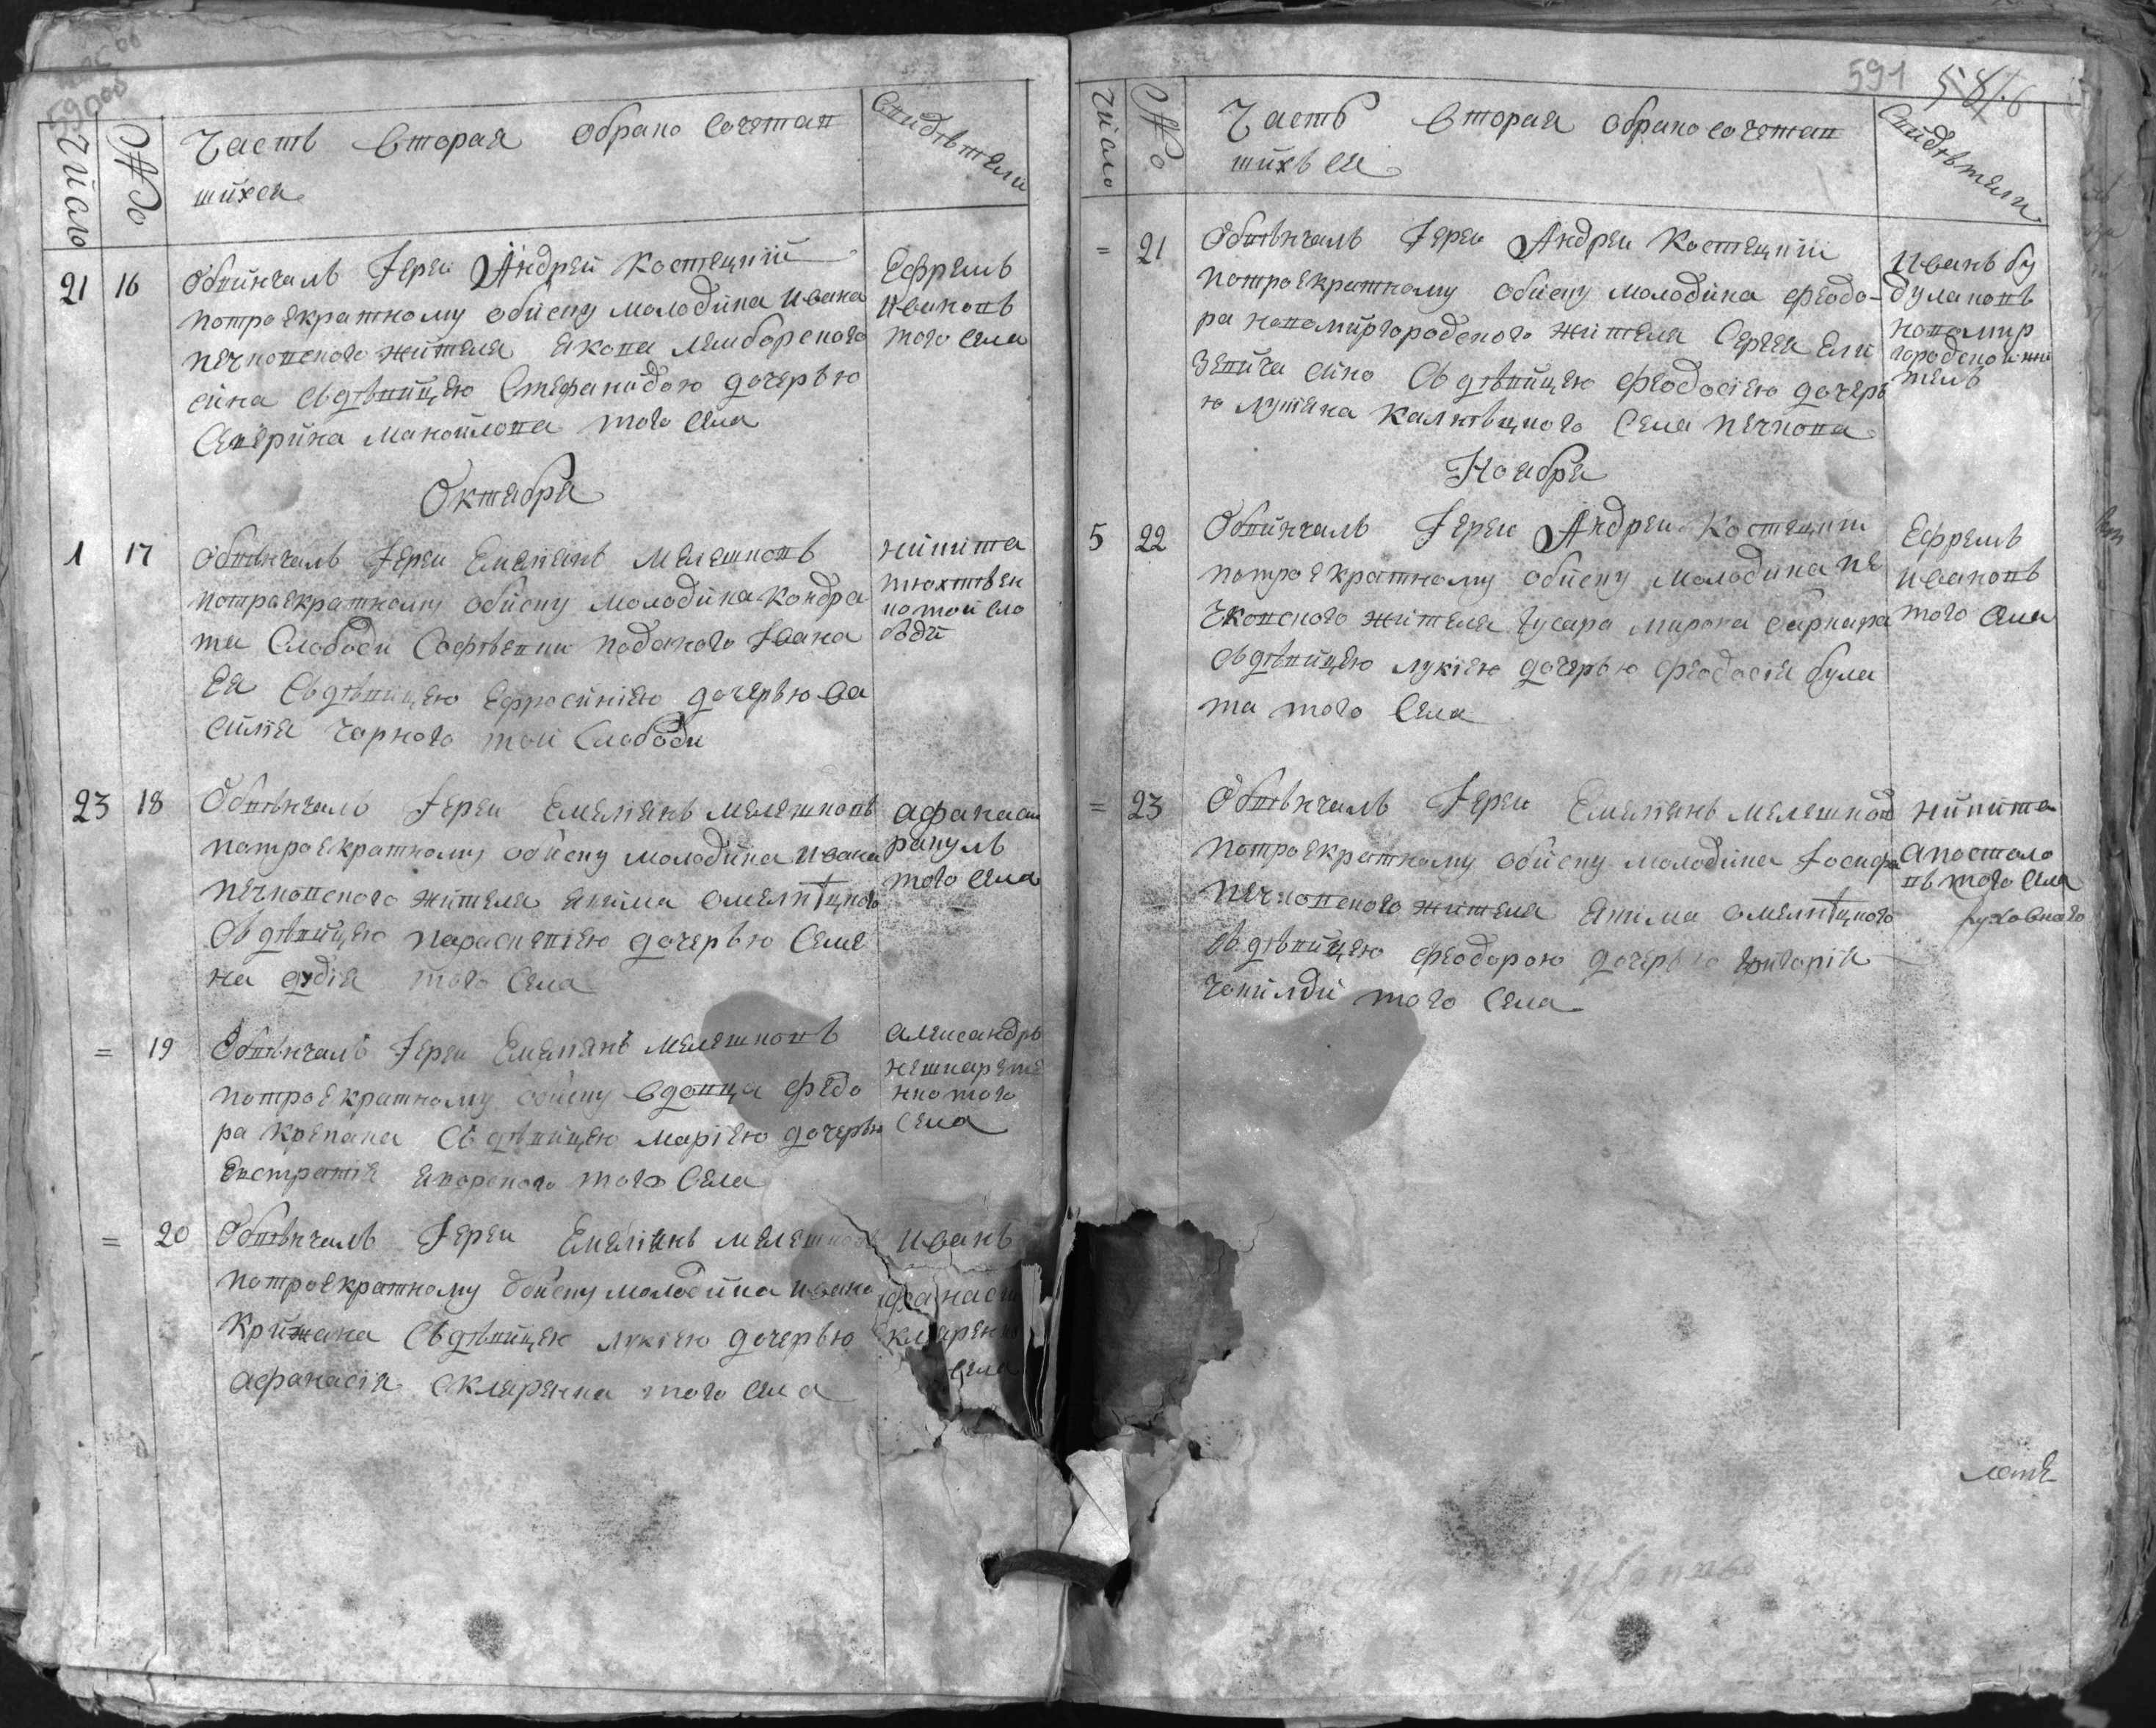 590 об
Число
№
Часть Вторая обрако Сочетав
шихся
Свидѣтели
21 16 Обвинчалъ Іереи Андреи Костецкій
потроекратному обиску молодика Ивана
печковского жителя Якова
сина Съ дѣвицею Стефанидою дочерью
Саверина Манойлова того Села
Ефремъ
Ивановъ
того Села
Октября
1 17 Обвѣнчалъ Іереи Емелианъ Мелешковъ
потроекратному обиску молодика Кондра
та Слободи Софѣевки поданого Ивана
Ея Съ дѣвицею Ефросиніею дочерью Ва
силия Чорного той Слободи
Никита
той сло
боди
23 18 Обвѣнчалъ Іереи Емелианъ Мелешковъ
потроекратному обиску молодика Ивана
печковского жителя Якима Омелницкого
Съ дѣвицею Параскевіею дочерью Семе
на дудія того Села
Афанаси
рапулъ
того Села
= 19 Обвѣнчалъ Іереи Емелианъ Мелешковъ
потроекратному обиску вдовца Федо
ра Крепака Съ дѣвицею Маріею дочерью
Евстратія того Села
Александръ
того
Села
= 20 Обвѣнчалъ Іереи Емелианъ
потроекратному обиску молодика Ивана
Крижана Съ дѣвицею Лукіею дочерью
Афанасія Скляренка того Села
Иванъ
Афанаси
Села
591 587 б
Число
№
Часть Вторая обрако сочетав
шихъ ся
Свидѣтели
= 21 Обвѣнчалъ Іереи Андреи Костецкіи
потроекратному обиску молодика Феодо-
ра новомиргородского жителя Сергея Ели
зевича сина Съ дѣвицею Феодосіею дочерь
ю Лукяна Калнѣцкого Села печкова
Иванъ Бу
дулановъ
новомир
городской жи
тель
Ноября
5 22 Обвинчалъ Іереи Андреи Костецкіи
потроекратному обиску молодика пе
чковского жителя Гусара Мирона
Съ дѣвицею Лукіею дочерью Феодосія була
та того Села
Ефремъ
Ивановъ
того Села
= 23 Обвѣнчалъ Іереи Емелианъ Мелешков
потроекратному обиску молодика Іосифа
печковского жителя Якима Омелницкого
Съ дѣвицею Феодорою дочерью Григорія
того Села
Никита
Апостоло
въ того Села